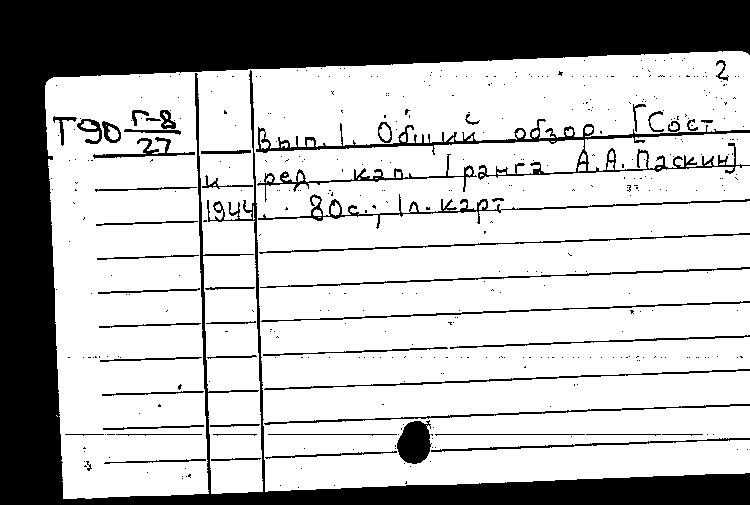 2
Т90 Г-8/27
Вып. 1. Общий обзор. [Сост.
и ред. кап. 1 ранга А.А. Паскин].
1944. 80с.; 1л. карт.